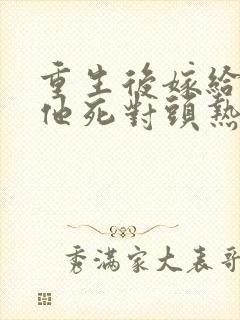 重生後嫁給
他死對頭熱
秀滿家大表哥